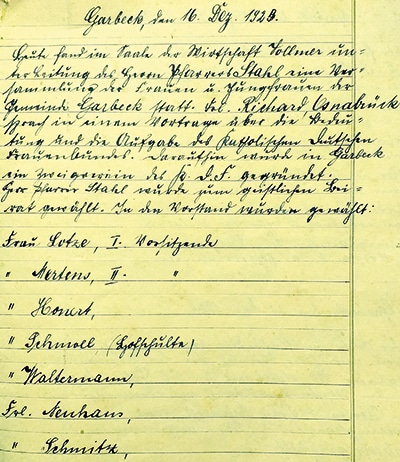 Garbeck, den 16. Dez. 1928.
Heute fand im Saale der Wirtschaft Vollmer un-
ter Leitung des Herrn Pfarrers Stahl eine Ver-
sammlung der Frauen u. Jungfrauen der
Gemeinde Garbeck statt. Frl. Richard, Osnabrück
sprach in einem Vortrage über die Bedeu-
tung und die Aufgabe des Katholischen Deutschen
Frauenbundes. Daraufhin wurde in Garbeck
ein Zweigverein des K. D. F. gegründet.
Herr Pfarrer Stahl wurde zum geistlichen Bei-
rat gewählt. In den Vorstand wurden gewählt:
Frau Lotze, I. Vorsitzende
" Mertens, II. "
" Honert,
" Schmoll (Hofschulte)
" Waltermann,
Frl. Neuhaus,
" Schmitz,